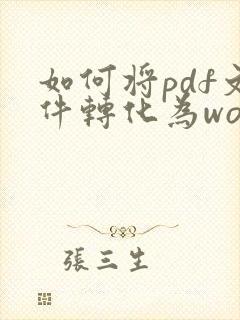 如何将pdf文
件轉化為wo
張三生